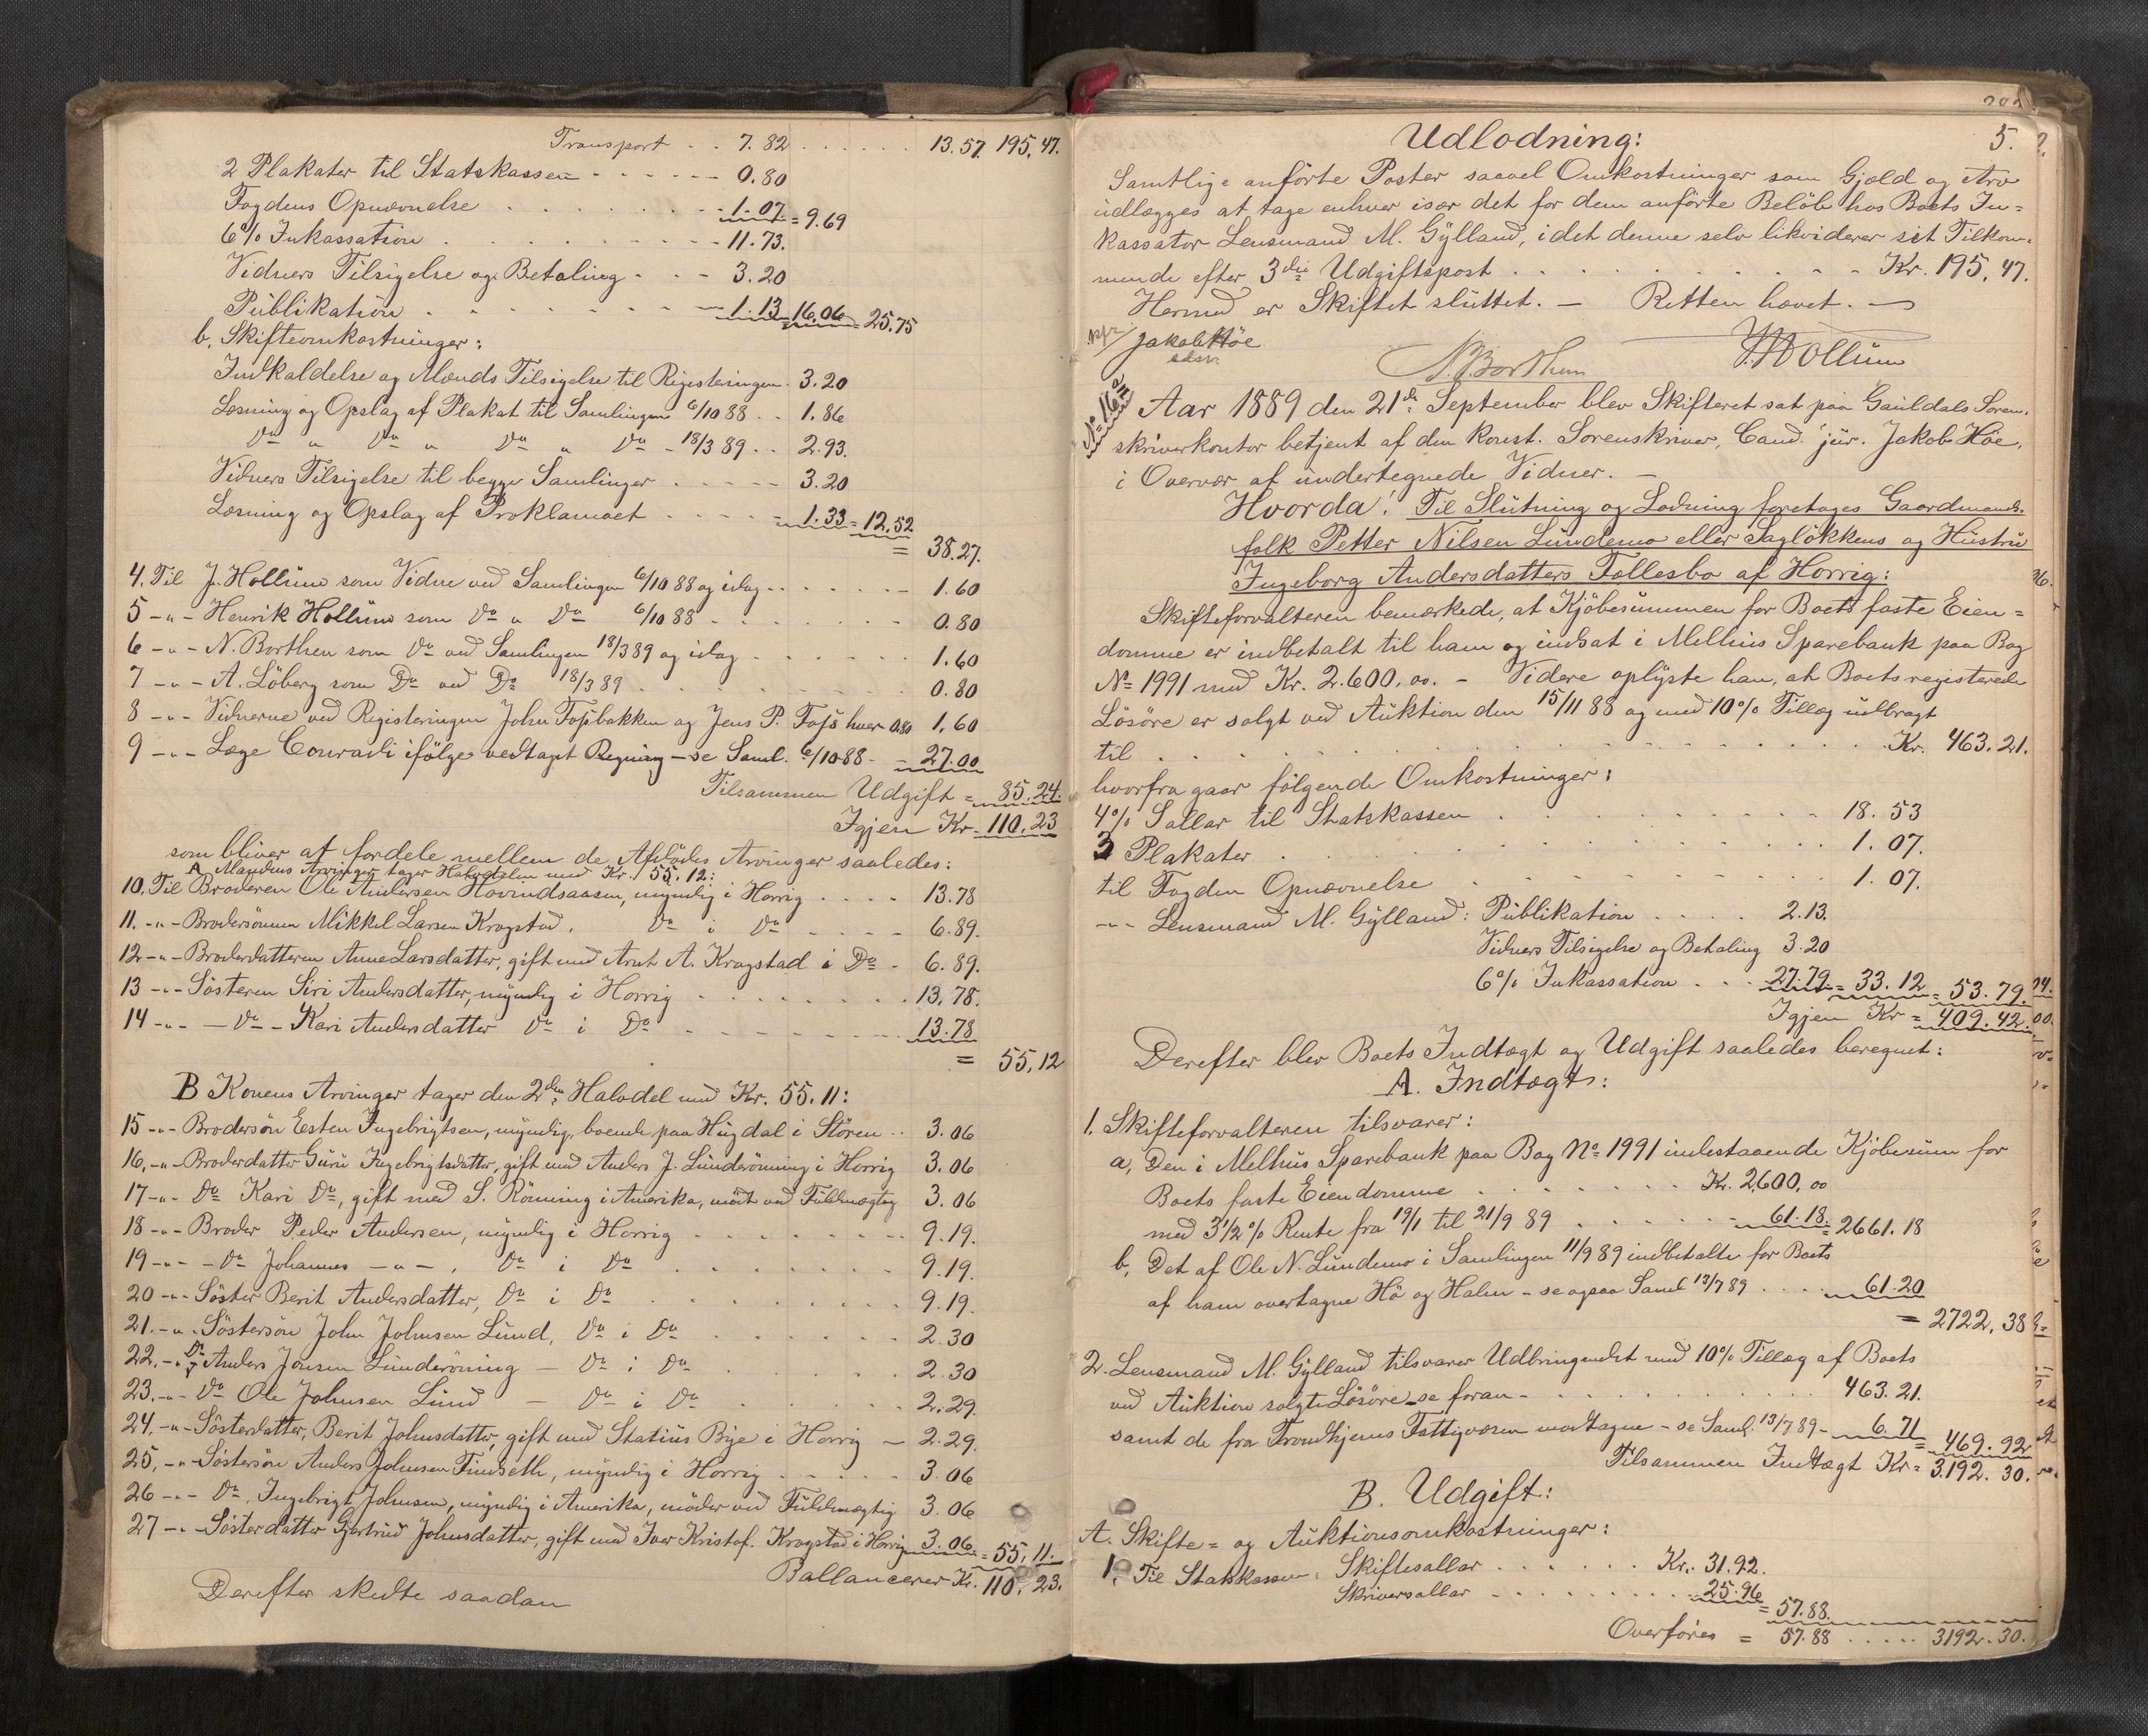 Transport . . 7.82 . . . . . . 13.57. 195,47.
2 Plakater til Statskassen - - - - - - 0.80
Fogdens Opnævnelse . . . . . . . 1.07 = 9.69
6% Inkassation . . . . . . . . . 11.73.
Vidners Tilsigelse og Betaling - - - 3.20
Publikation . . . . . . . . . 1.13 = 16.06 = 25.75
b, Skifteomkostninger:
Indkaldelse og Mænds Tilsigelse til Registeringen. 3.20
Læsning og Opslag af Plakat til Samlingen 6/10 88 . . 1.86
Do " Do " Do " Do - 18/3 89 . . 2.93.
Vidners Tilsigelse til begge Samlinger . . - - - - 3.20
Læsning og Opslag af Proklamaet . . - - - - 1.33 = 12.52
= 38.27.
4. Til J. Hollum som Vidne ved Samlingen 6/10 88 og idag - - . . . . . - 1.60
5 - " - Henrik Hollum som Do " Do 6/10 88 - . . . . . . 0.80
6 - " - N. Borthen som Do ved Samlingen 18/3 89 og idag . . . . . . 1.60
7 - " - A. Löberg som Do ved Do 18/3 89 . . . . . . . . 0.80
8 - " - Vidnerne ved Registeringen John Fosbakken og Jens P. Foss hver 0.80 1,60
9 - " - Læge Conradi ifölge vedtagt Regning - se Saml. 6/10 88 - - 27.00
Tilsammen Udgift = 85.24.
Igjen Kr. = 110.23
som bliver at fordele mellem de Afdödes Arvinger saaledes:
A Mandens Arvinger tager Halvdelen med Kr. 55.12:
10. Til Broderen Ole Andersen Hovindsaasen, myndig i Horrig . . . . 13.78
11. - " - Brodersönnen Mikkel Larsen Kragstad, Do i Do - - - - - 6.89.
12 - " - Broderdatteren Anne Larsdatter, gift med Arnt A. Kragstad i Do - 6.89.
13 - " - Sösteren Siri Andersdatter, myndig i Horrig . . . . . . . . 13.78.
14 - " - - Do - Kari Andersdatter Do i Do . . - - - - - - 13.78
= 55,12
B Konens Arvinger tager den 2den Halvdel med Kr. 55.11:
15 - " - Brodersön Esten Ingebrigtsen, myndig, boende paa Hugdal i Stören . . 3.06
16, - " - Broderdatter Guru Ingebrigtsdatter, gift med Anders J. Lunderönning i Horrig 3.06
17 - " - Do Kari Do, gift med S. Rönning i Amerika, mödt ved Fuldmægtig 3.06
18 - " - Broder Peder Andersen, myndig i Horrig - . . . . . . . 9.19.
19 - " - - Do Johannes - " - , Do i Do . . . . . . 9.19.
20 - " - Söster Berit Andersdatter, Do i Do . . . . . . . . . 9.19.
21. - " . Söstersön John Johnsen Lund, Do i Do . . . . . . . 2.30
22. - " . Do Anders Jonsen Lunderöning - Do i Do . . . . . . 2.30
23. - " - Do Ole Johnsen Lund - Do i Do . . . . . . 2.29.
24. - " - Sösterdatter, Berit Johnsdatter, gift med Statius Bye i Horrig - 2.29.
25, - " - Söstersön Anders Johnsen Findseth, myndig i Horrig . . - . . 3.06
26 - " - Do, Ingebrigt Johnsen, myndig i Amerika, möder ved Fuldmægtig 3.06
27 - " - Sösterdatter Gjertrud Johnsdatter, gift med Iver Kristof. Kragstad i Horrig 3.06. = 55,11.
Ballancerer Kr. 110,23.
Derefter skedte saadan
5.
Udlodning:
Samtlige anförte Poster saavel Omkostninger som Gjæld og Arv
udlægges at tage enhver især det for dem anförte Belöb hos Boets In=
kassator Lensmand M. Gylland, idet denne selv likviderer sit Tilkom-
mende efter 3die Udgiftspost . . . . . . . . . . . - - Kr. 195,47.
Hermed er Skiftet sluttet. - Retten hævet. -
Jakob Höe
N. Borthen J. Hollum
No 16a
Aar 1889 den 21de September blev Skifteret sat paa Guldals Soren-
skriverkontor betjent af den konst. Sorenskriver, Cand. jur. Jakob Höe,
i Overvær af undertegnede Vidner. -
Hvorda! Til Slutning og Lodning foretoges Gaardmands-
folk Petter Nilsen Lundemo eller Saglökkens og Hustru
Ingeborg Andersdatters Fællesbo af Horrig:
Skifteforvalteren bemærkede, at Kjöbesummen for Boets faste Eien=
domme er indbetalt til ham og indsat i Melhus Sparebank paa Bog
No 1991 med Kr. 2.600,00. - Videre oplyste han, at Boets registerede
Lösöre er solgt ved Auktion den 15/11 88 og med 10% Tillæg udbragt
til . . . . . . . . . . . . . . . . . . . Kr. 463.21.
hvorfra gaar fölgende Omkostninger:
4% Sallar til Statskassen . . . . . . . . . - 18.53
3 Plakater . . . . . . . . . . . . . . 1.07.
til Fogden Opnævnelse . - - - - - . . 1.07.
- " - Lensmand M. Gylland: Publikation . . . . 2.13.
Vidners Tilsigelse og Betaling 3.20
6% Inkassation . . . 27.79 = 33.12 = 53.79.
Igjen Kr = 409.42.
Derefter blev Boets Indtægt og Udgift saaledes beregnet:
A. Indtægt:
1. Skifteforvalteren tilsvarer:
a, Den i Melhus Sparebank paa Bog No 1991 indestaaende Kjöbesum for
Boets faste Eiendomme . . . . . . . Kr. 2,600,00
med 3 1/2 % Rente fra 19/1 til 21/9 89 . . . . . - - 61.18 = 2661.18
b, Det af Ole N. Lundemo i Samlingen 11/9 89 indbetalte for Boets
af ham overtagne Hö og Halm - se ogsaa Saml 13/7 89 . . . . 61.20
= 2722,38
2. Lensmand M. Gylland tilsvarer Udbringendet med 10% Tillæg af Boets
ved Auktion solgte Lösöre - se foran - . . . . . . . . . . 463.21.
samt de fra Trondhjems Fattigvæsen modtagne - se Saml. 13/7 89 - 6.71 = 469.92
Tilsammen Indtægt Kr = 3.192.30.
B. Udgift:
A. Skifte= og Auktionsomkostninger:
1, Til Statskassen, Skiftesallar . . . . . . Kr. 31.92.
Skriversallar - . . . . . . . . - 25.96
= 57.88.
Overföres = 57.88 . . . . . 3192.30.